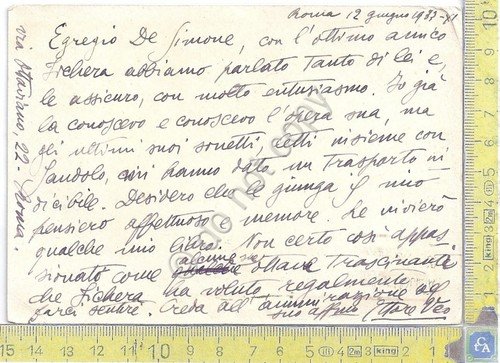 Roma 12 giugno 1933-XI
Egregio De Simone, con l'ottimo amico
Fichera abbiamo parlato tanto di lei e,
le assicuro, con molto entusiasmo. Io già
la conoscevo e conoscevo l'opera sua, ma
gli ultimi suoi sonetti, letti insieme con
Sandolo, mi hanno dato un trasporto in
dicibile. Desidero che le giunga il mio
pensiero affettuoso e memore. Le invierò
qualche mio libro. Non certo così appas
sionato come alcune sue ottave trascinanti
che Fichera ha voluto regalmente
farci sentire. Creda all'ammirazione del
suo aff.mo Ettore Veo
via Ottaviano, 22 - Roma.
do not copy
15 14 13 12 11 10 9 8 7 6 5 4 3 2 1
10 9 8 7 6 5 4 3 2 1
2m king